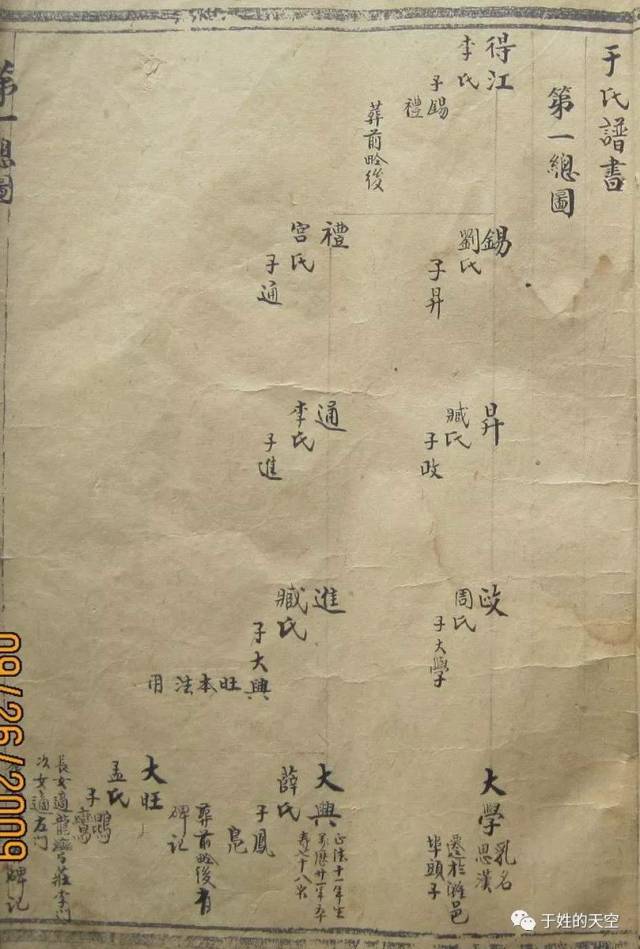 于氏譜書
第一總圖
得江
李氏
子錫
禮
葬前昤後
錫
劉氏
子昇
禮
宮氏
子通
昇
臧氏
子政
通
李氏
子進
政
周氏
子大學
進
臧氏
子大興
旺本法用
大學
乳名思漢
遷於濰邑
毕頭子
大興
正法十一年生
萬厯廿一年卒
寿六十八岁
薛氏
子鳳
凫
葬前昤後有
碑记
大旺
孟氏
子鵬
鸞
長女適龍灣莊李门
次女適左门
碑记
第一總圖
09/26/2009
于姓的天空